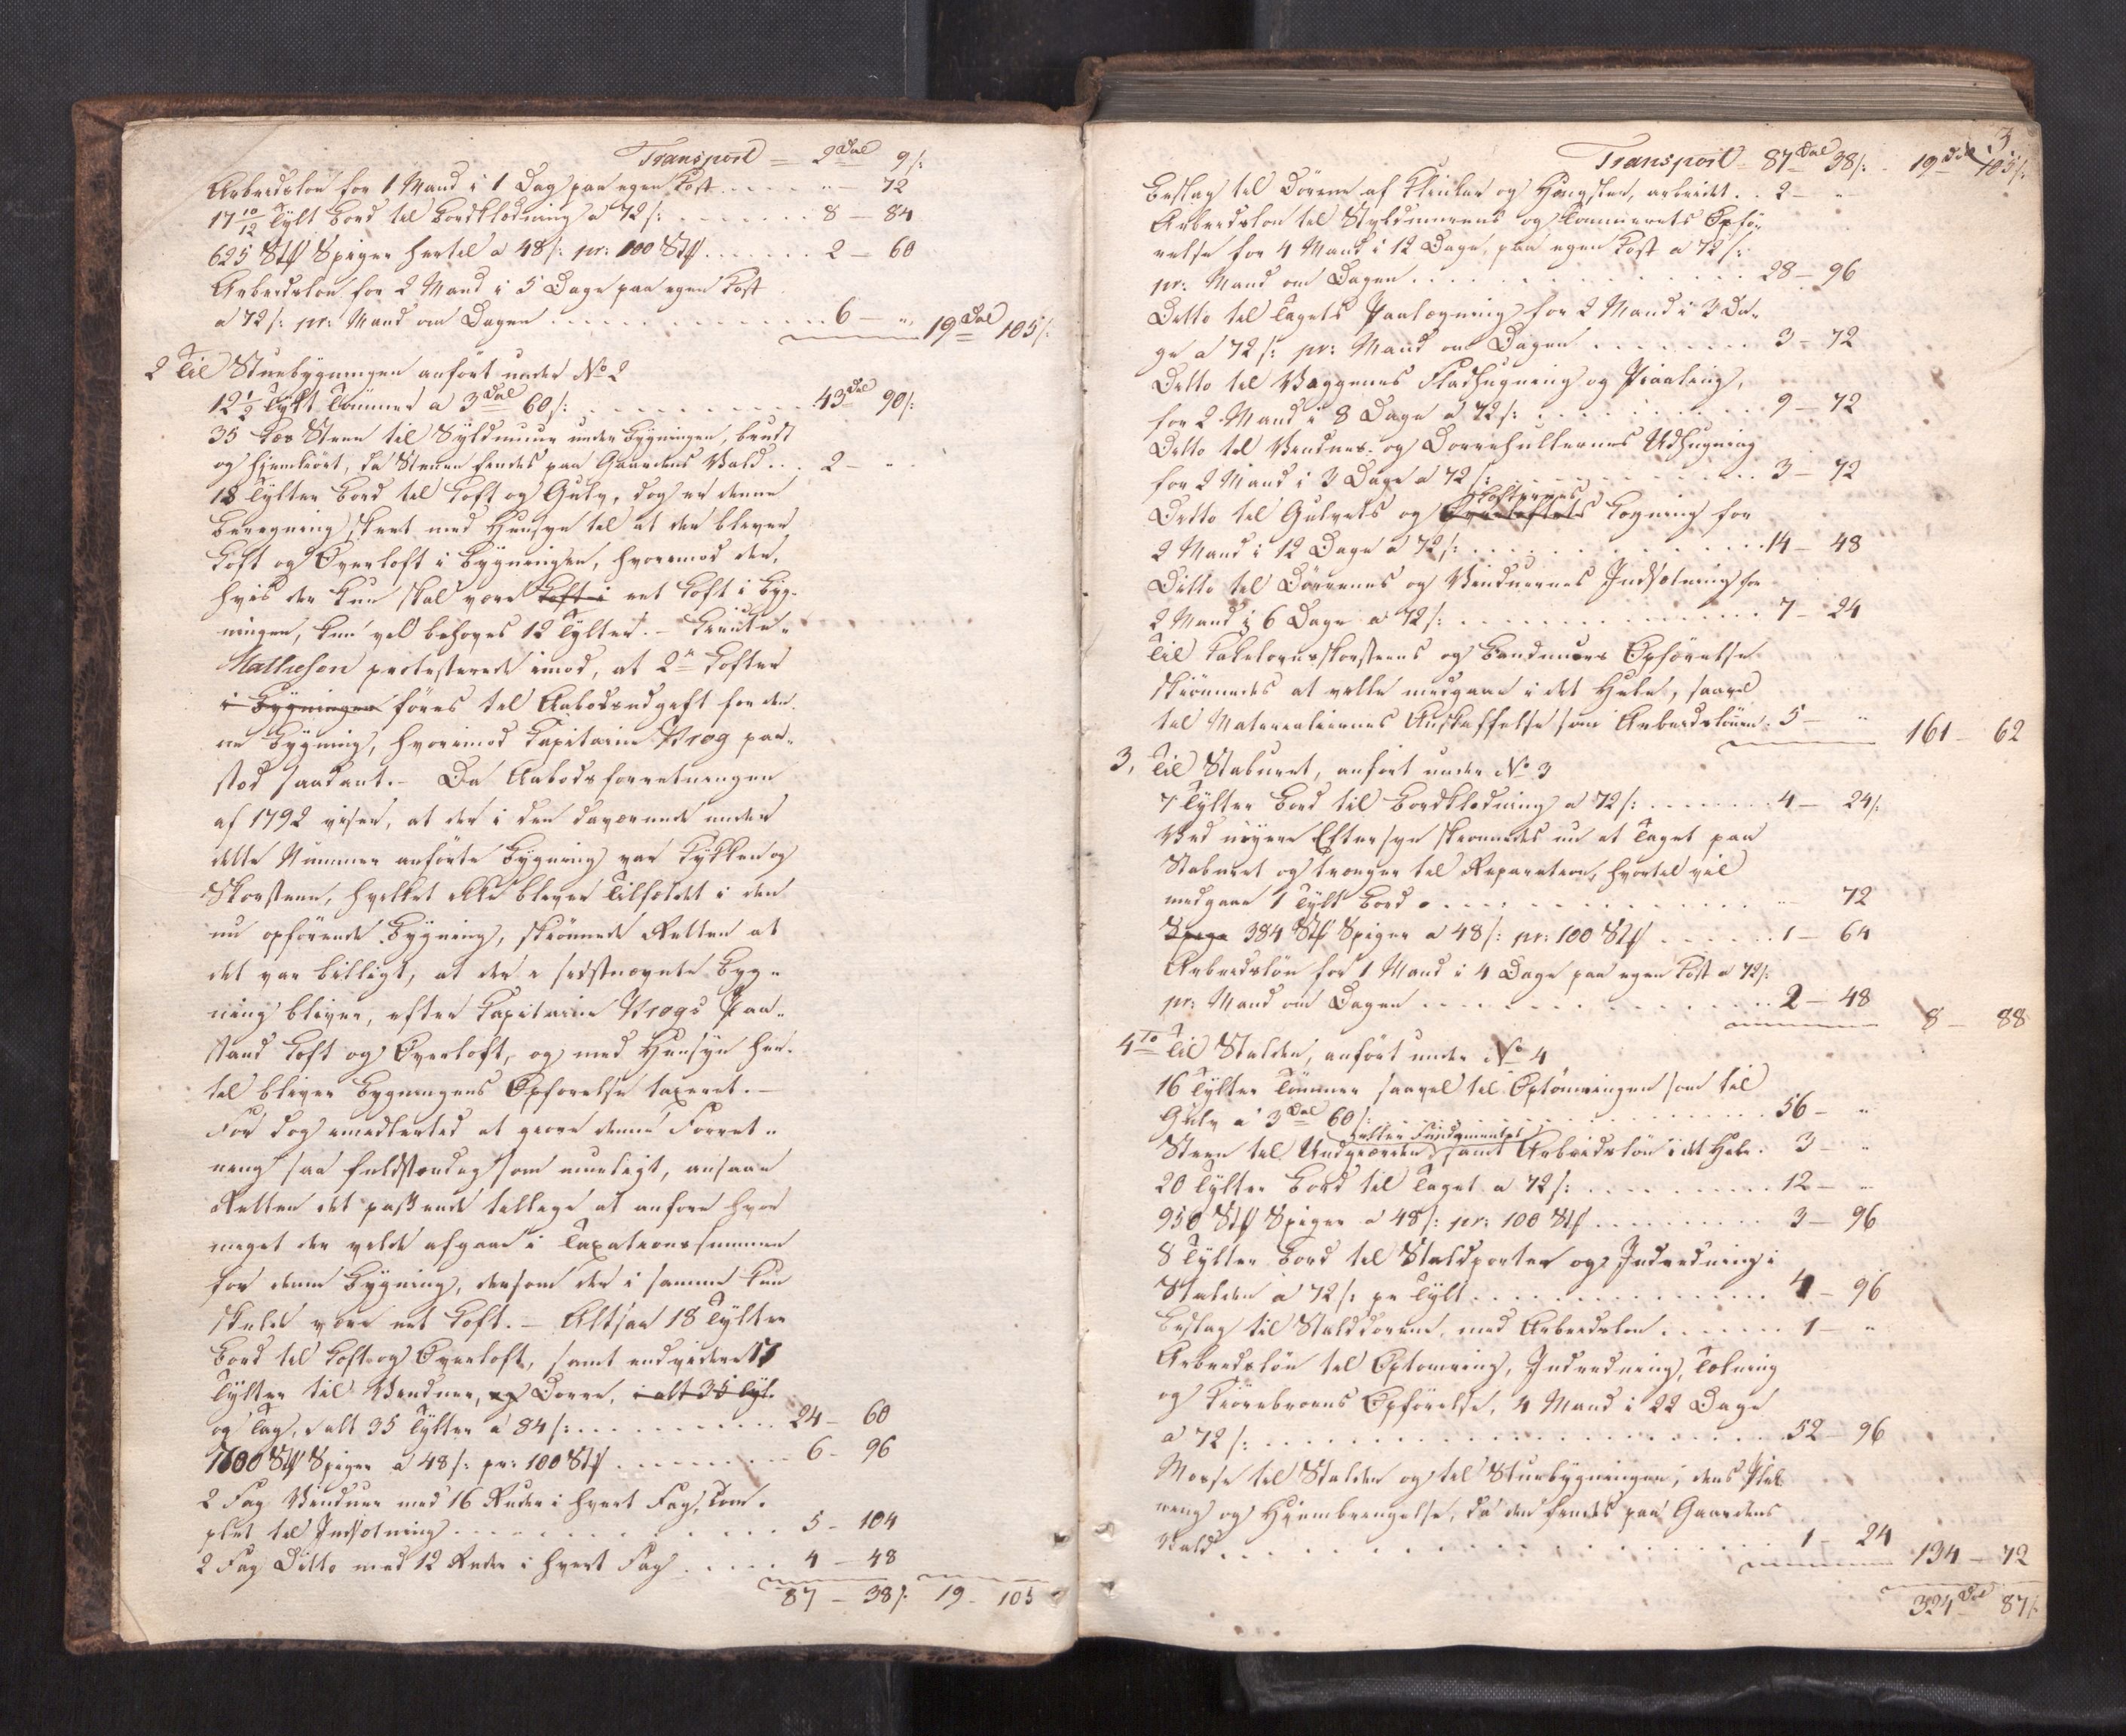 Transport = 2 Dal 9 s:
Arbeidsløn for 1 Mand i 1 Dag paa egen Kost . . . . . „ — 72
17 10/12 Tylt Bord til Bordklædning a 72 s: . . . . . . . 8 — 84
625 Stk Spiger hertil a 48 s: pr: 100 Stk . . . . . . . 2 — 60
Arbeidsløn for 2 Mand i 5 Dage paa egen Kost
a 72 s: pr: Mand om Dagen . . . . . . . . . . . . . 6 — „ 19 Dal 105 s:
2 Til Stuebygningen anført under No 2
12 1/2 Tylt Tømmer a 3 Dal 60 s: . . . . . . . . . . 43 Dal 90 s:
35 Læs Steen til Syldmuur under Bygningen, brudt
og hjemkiørt, da Stenen findes paa Gaardens Vald . . . 2 — „
18 Tylter Bord til Loft og Gulv, dog er denne
Beregning skeet med Hensyn til at der bliver
Loft og Overloft i Bygningen, hvorimod der,
hvis der kun skal være Loft i eet Loft i Byg-
ningen, kun vil behøves 12 Tylter. –
Mathieson protesterede imod, at 2de Lofter
i Bygningen føres til Aabodsudgift for den-
ne Bygning, hvorimod Capitaine Krog paa-
stod saadant. – Da Aabodsforretningen
af 1792 viser, at der i den daværende under
dette Nummer anførte Bygning var Kjøkken og
Skorsteen, hvilket ikke bliver Tilfældet i den
nu opførende Bygning, skiønnede Retten at
det var billigt, at der i sidstnævnte Byg-
ning bliver, efter Capitaine Krogs Paa-
stand Loft og Overloft, og med Hensyn her-
til bliver Bygningens Opførelse taxeret. –
For dog imidlertid at giøre denne Forret-
ning saa fuldstændig som mueligt, ansaae
Retten det passende tillige at anføre hvor
meget der vilde afgaae i Taxationssummen
for denne Bygning, dersom der i samme kun
skulde være eet Loft. – Altsaa 18 Tylter
Bord til Loft og Overloft, samt endvidere 17
Tylter til Vinduer, og Dørre, i alt 35 Tylt.
og Tag, i alt 35 Tylter a 84 s: . . . . . . . . . . 24 — 60
1600 Stk Spiger a 48 s: pr: 100 Stk . . . . . . . . . 6 — 96
2 Fag Vinduer med 16 Ruder i hvert Fag, com-
plet til Indsætning . . . . . . . . . . . . . . 5 — 104
2 Fag Ditto med 12 Ruder i hvert Fag . . . . . 4 — 48
87 — 38 s: 19 — 105
3.
Transport 87 Dal 38 s: 19 Dal 105 s:
Beslag til Dørene af Klinker og Hængsler, arbeidet . . 2 — „
Arbeidsløn til Syldmurens og Tømmerets Opfø-
relse for 4 Mand i 12 Dage, paa egen Kost a 72 s:
pr: Mand om Dagen . . . . . . . . . . . . . . . 28 — 96
Ditto til Tagets Paalægning for 2 Mand i 3 Da-
ge a 72 s: pr: Mand om Dagen . . . . . . . . 3 — 72
Ditto til Væggenes Fladhugning og
for 2 Mand i 8 Dage a 72 s: . . . . . . . . . . 9 — 72
Ditto til Vindues- og Dørrehullernes Udhugning
for 2 Mand i 3 Dage a 72 s: . . . . . . . . . . . 3 — 72
Lofternes
Ditto til Gulvets og Overloftets Lægning for
2 Mand i 12 Dage a 72 s: . . . . . . . . . . . . 14 — 48
Ditto til Dørrenes og Vinduernes Indsætning for
2 Mand i 6 Dage a 72 s: . . . . . . . . . . . . . 7 — 24
Til Kakelovnsskorsteens og Brandmuurs Opførelse
skiønnedes at ville medgaae i det Hele, saavel
til Materialiernes Anskaffelse som Arbeidslønn: 5 — „ 161 — 62
3, Til Staburet, anført under No 3
7 Tylter Bord til Bordklædning a 72 s: . . . . . . . 4 — 24 s:
Ved nøyere Eftersyn skiønnedes nu at Taget paa
Staburet og trænger til Reparation, hvortil vil
medgaae 1 Tylt Bord . . . . . . . . . . . . . . „ 72
Spige 384 Stk Spiger a 48 s: pr: 100 Stk . . . . . . . 1 — 64
Arbeidsløn for 1 Mand i 4 Dage paa egen Kost a 72 s:
pr: Mand om Dagen . . . . . . . . . . . . . . . 2 — 48 8 — 88
4to Til Stalden, anført under No 4
16 Tylter Tømmer saavel til Optømringen som til
Gulv a 3 Dal 60 s: . . . . . . . . . . . . . . . . 56 — „
eller Fundamentet
Steen til samt Arbeidsløn i det Hele . 3 — „
20 Tylter Bord til Taget a 72 s: . . . . . . . . . 12 — „
950 Stk Spiger a 48 s: pr: 100 Stk . . . . . . . . . 3 — 96
8 Tylter Bord til Staldporter og Indredning i
Stalden a 72 s: pr Tylt . . . . . . . . . . . . . . 4 — 96
Beslag til Stalddørene, med Arbeidsløn . . . . . . . 1 — „
Arbeidsløn til Optømring, Indredning, Tækning
og Kiørebroens Opførelse, 4 Mand i 22 Dage
a 72 s: . . . . . . . . . . . . . . . . . . . . . . . 52 — 96
Mosse til Stalden og til Stuebygningen, dens
ning og Hjembringelse, da den findes paa Gaardens
Vald . . . . . . . . . . . . . . . . . . . . . . . 1 — 24 134 — 72
324 Dal 87 s: